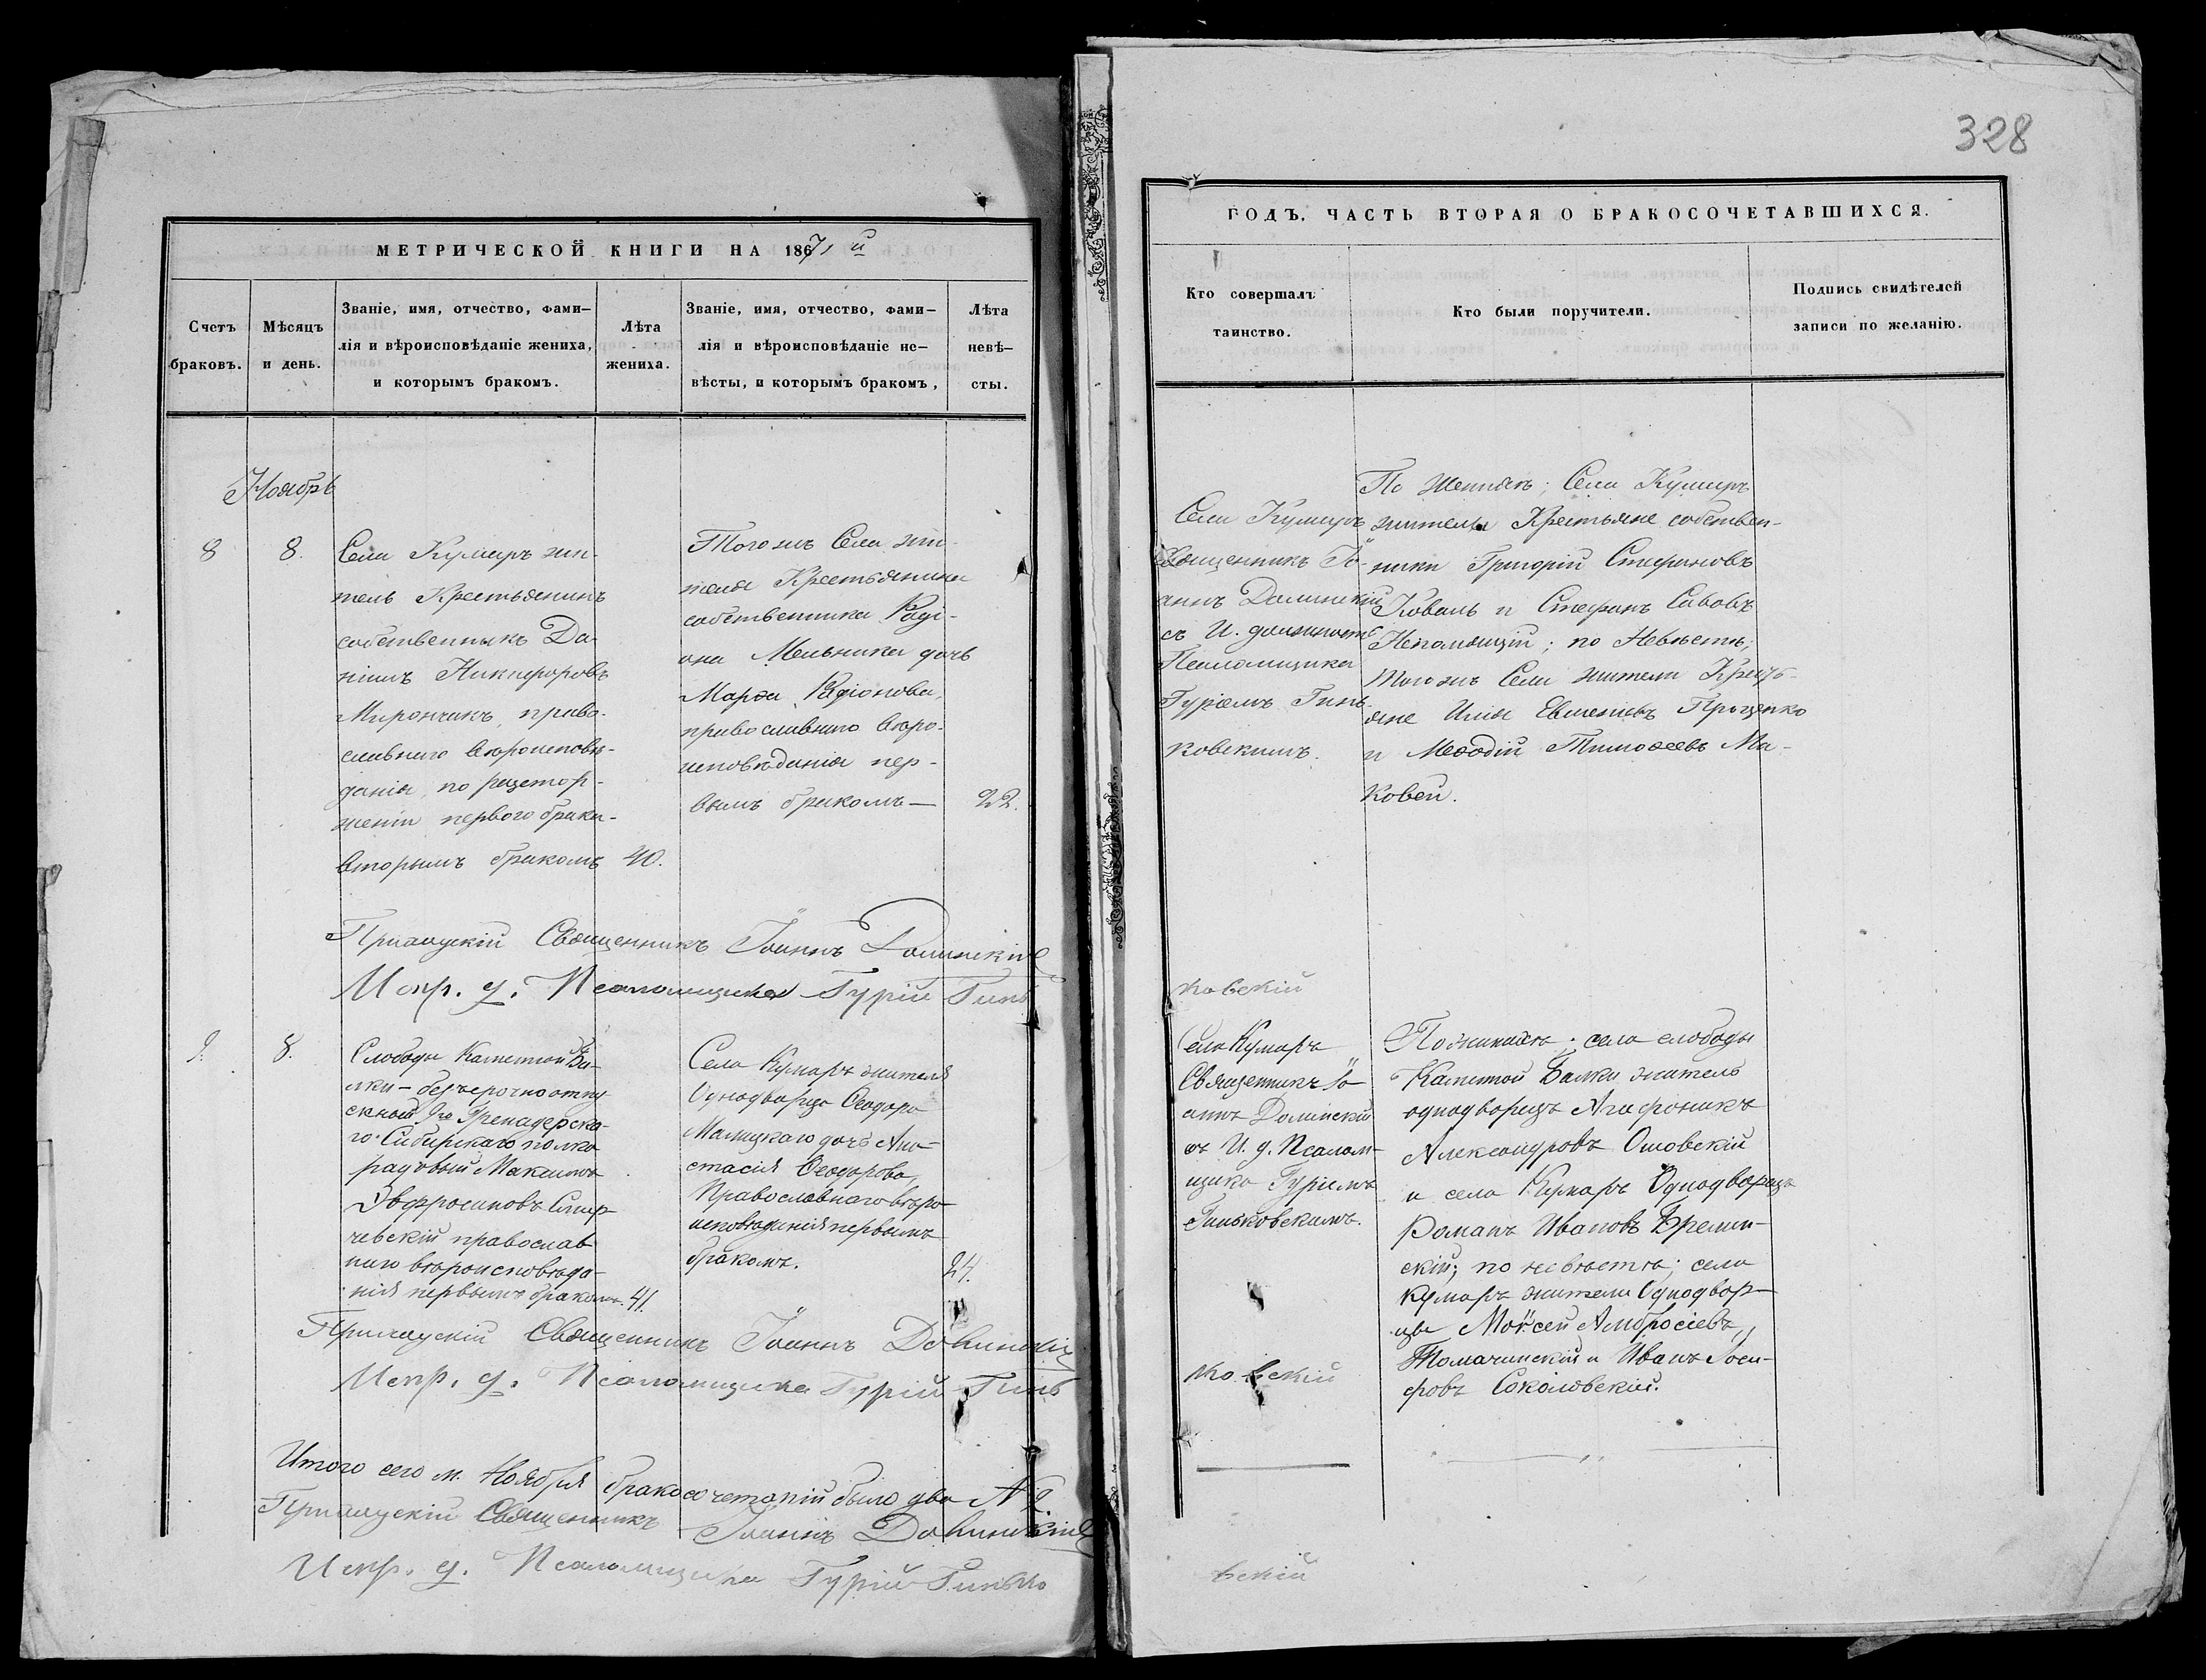 328
МЕТРИЧЕСКОЙ КНИГИ НА 1871 й
Счетъ
браковъ.
Мѣсяцъ
и день.
Званіе, имя, отчество, фами-
лія и вѣроисповѣданіе жениха,
и которымъ бракомъ.
Лѣта
жениха.
Званіе, имя, отчество, фами-
лія и вѣроисповѣданіе не-
вѣсты, и которымъ бракомъ,
Лѣта
невѣ-
сты.
Ноябрь
8
8.
Села Кумаръ жи-
тель Крестьянинъ
собственникъ Да-
ніилъ Никифоровъ
Мирончикъ, право-
славнаго вѣроисповѣ-
данія, по растор
женіи перваго брака-
вторымъ бракомъ
40.
Тогожъ Села жи-
теля Крестьянина
собственника Роді-
она Мельника дочь
Марѳа Родіонова,
православнаго вѣро-
исповѣданія пер-
вымъ бракомъ—
22.
Приходскій Священникъ Іоаннъ Долинскій
Испр. д. Псаломщика Гурій Гинь
9.
8.
Слободы Каменной Ба-
лки - безъсрочноотпу
скной 9го Гренадерска-
го Сибирскаго полка
рядовый Максимъ
Эвфросиновъ
чевскій православ
наго вѣроисповѣда-
нія первымъ бракомъ.
41.
Села Кумаръ жителя
Однодворца Ѳеодора
Малицкаго дочь Ана-
стасія Ѳеодорова,
Православнаго вѣро
исповѣданія первымъ
бракомъ.
24.
Приходскій Священникъ Іоаннъ Долинскій
Испр. д. Псаломщика Гурій Гинь
Итого сего м. Ноября бракосочетаній было два № 2.
Приходскій Священникъ Іоаннъ Долинскій
Испр. д. Псаломщика Гурій Гинько
ГОДЪ. ЧАСТЬ ВТОРАЯ О БРАКОСОЧЕТАВШИХСЯ.
Кто совершалъ
таинство.
Кто были поручители.
Подпись свидѣтелей
записи по желанію.
Села Кумаръ
Священникъ Іо-
аннъ Долинскій
съ И. должность
Псаломщика
Гуріемъ Гинь
ковскимъ.
По женихѣ; Села Кумаръ
жители Крестьяне собствен-
ники Григорій Стефановъ
Коваль и Стефанъ Савовъ
Непомнящій; по Невѣстѣ;
тогожъ Села жители Кресть-
яне Илія Евменіевъ Проценко
и Меѳодій Тимоѳеевъ Ма-
ковей.
ковскій
Села Кумаръ
Священникъ Іо-
аннъ Долинскій
съ И. д. Псалом-
щика Гуріемъ
Гиньковскимъ.
По женихѣ; села слободы
Каменной Балки житель
однодворецъ Агафоникъ
Александровъ Ошовскій
и села Кумаръ Однодворецъ
Романъ Ивановъ Бремин-
скій; по невѣстѣ; села
Кумаръ жители Однодвор-
цы Моѵсей Амвросіевъ
Томачинскій и Иванъ Іоси-
фовъ Соколовскій.
ковскій
вскій